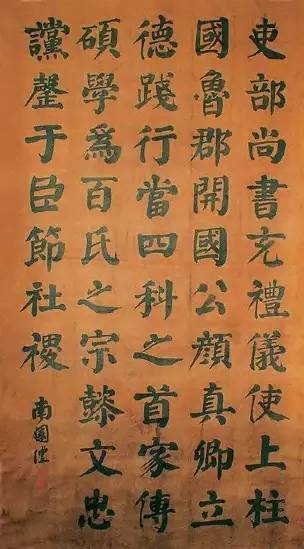 吏部尚書充禮儀使上柱
國魯郡開國公顔真卿立
德踐行當四科之首家傳
碩學爲百氏之宗懿文忠
讜罄于臣節社稷
南園灃